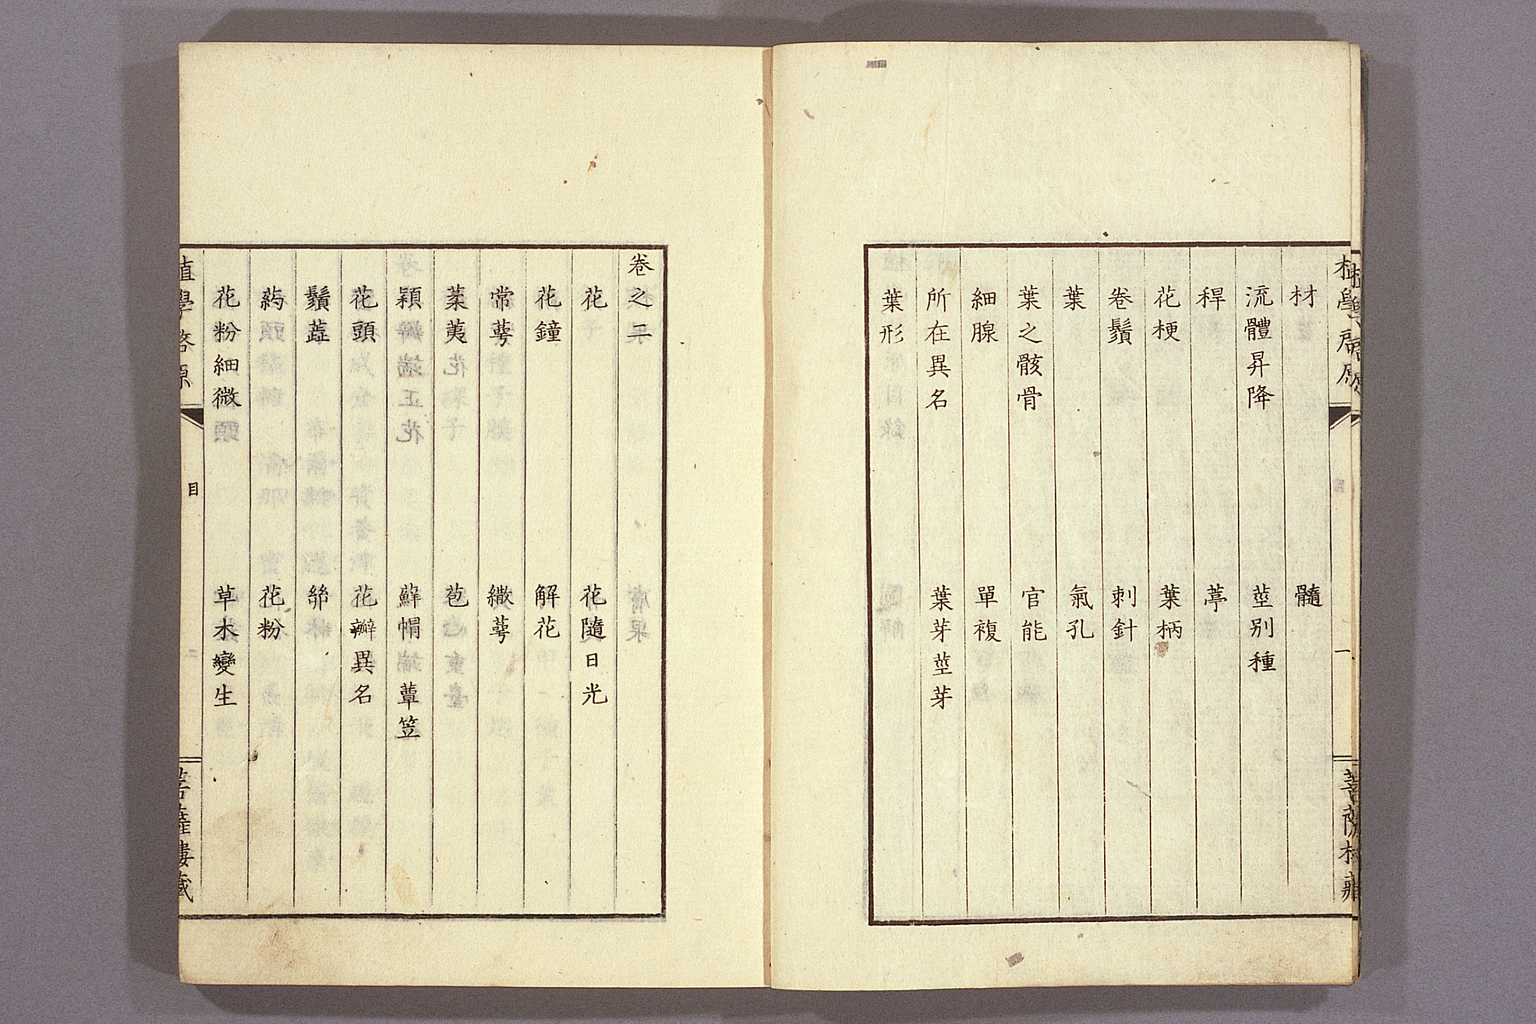 材 髓
流體昇降 莖別種
稈 葶
花梗 葉柄
卷鬚 刺針
葉 氣孔
葉之骸骨 官能
細腺 單複
所在異名 葉芽莖芽
葉形
一
卷之二
花 花隨日光
花鐘 解花
常萼 繖萼
葇荑 苞
穎 蘚帽 蕈笠
花頭 花瓣異名
鬚蘂
葯 花粉
花粉細微頭 草木變生
植學啓原
目
菩薩樓藏